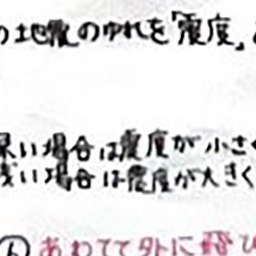 の地震のゆれを「震度」
深い場合は震度が小さく
浅い場合は震度が大きく
あわてて外に飛び